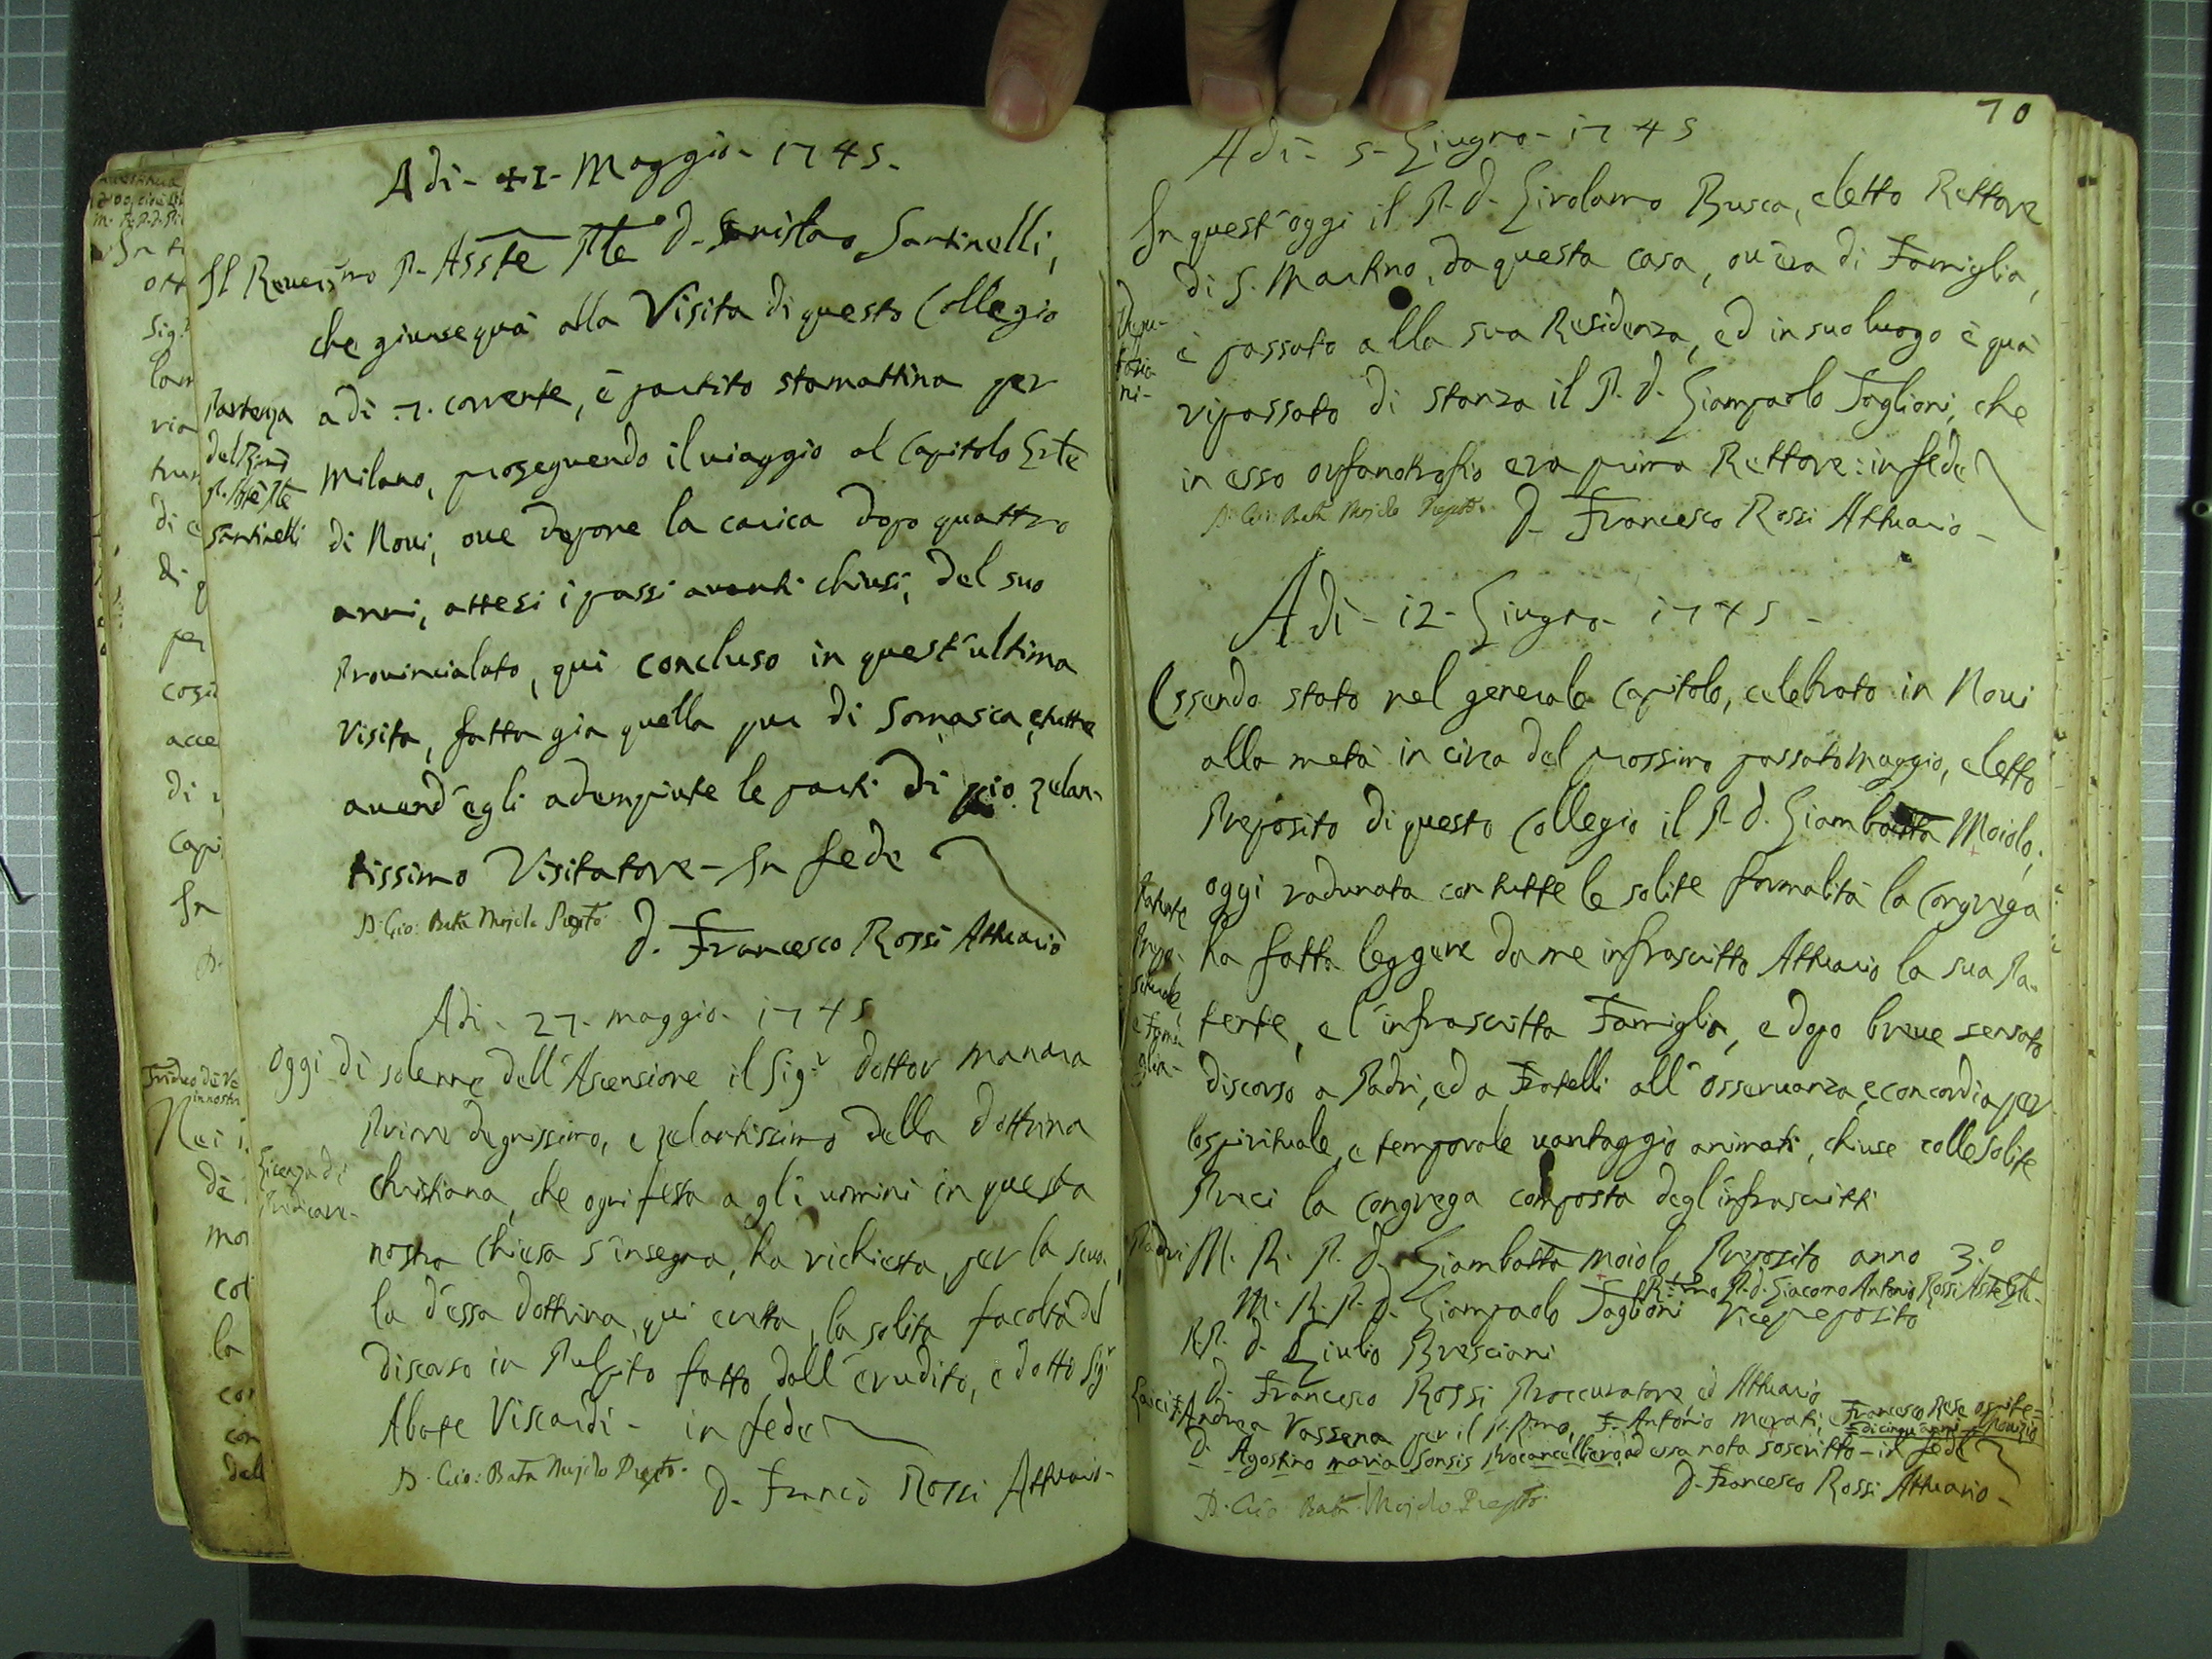 Adi - 11 - Maggio - 1745 -
Il Reverismo P. Asste Ple D. Stanislao Santinelli,
che giunse quà alla Visita di questo Collegio
Partenza
adi .7. corrente, è partito stamattina per
del Rmo
Milano, proseguendo il viaggio al Capitolo Grle
P. Asste Ple
Santinelli
di Novi, ove depone la carica dopo quattro
anni, attesi i passi avanti chiusi, del suo
Provincialato, quì concluso in quest'ultima
Visita, fatta già quella pur di Somasca,
avend'egli adempiute le parti di pio zelan-
tissimo Visitatore - In fede
D. Gio: Batta Mojolo Prepto
D. Francesco Rossi Attuario
Adi - 27 - maggio - 1745
Oggi dì solenne dell'Ascensione il Sigr Dottor Manara
Priore degnissimo, e zelantissimo della Dottrina
Licenza di
Predicare -
christiana, che ogni festa a gl'uomini in questa
nostra Chiesa s'insegna, ha richiesta, per la scuo-
la d'essa dottrina, la solita facoltà del
discorso in Pulpito fatto dall'erudito, e dotto Sigr
Abate Viscardi - in fede
D. Gio: Batta Mojolo Prepto.
D. Franco Rossi Attuario -
70
Adi - 5 - Giugno - 1745
In quest'oggi il P. D. Girolamo Rusca, eletto Rettore
di S. Martino, da questa casa, ov'era di Famiglia,
Depu-
tazio
ni -
è passato alla sua Residenza, ed in suo luogo è quà
ripassato di stanza il P. D. Giampaolo Taglioni, che
in esso orfanotrofio era prima Rettore: in fede
D. Gio: Batta Mojolo Prepto.
D. Francesco Rossi Attuario -
Adi - 12 - Giugno - 1745 -
Essendo stato nel generale Capitolo, celebrato in Novi
alla metà in circa del prossimo passato Maggio, eletto
Preposito di questo Collegio il P. D. Giambatta Moiolo,
oggi radunata con tutte le solite formalità la Congrega
Patente
Prepo-
siturale,
e Fami
glia -
ha fatta leggere da me infrascritto Attuario la sua Pa-
tente, e l'infrascritta Famiglia, e dopo breve sensato
discorso a Padri, ed a Fratelli all'osservanza, e concordia per
lo spirituale, e temporale vantaggio animati, chiuse colle solite
Preci la Congrega composta degl'infrascritti
Padri M. R. P. D. Giambatta Moiolo Preposito anno 3.º
Rmo P. D. Giacomo Antonio Rossi Asste Gle -
M. R. P. D. Giampaolo Taglioni Vicepreposito
R. P. D. Giulio Bresciani
D. Francesco Rossi Proccuratore, ed Attuario
Laici F. Andrea Vassena per il p. Rmo, F. Antonio Merati, e Francesco Rese ospite
D. Agostino Maria Sonsis Procancelliero, ad essa nota soscritto - in fede
D. Francesco Rossi Attuario -
D. Gio: Batta Mojolo Prepto